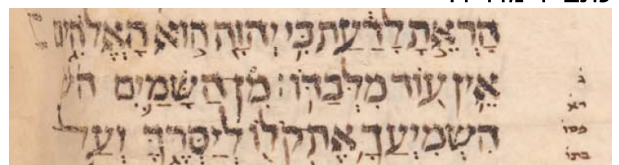 הָרְאֵתָ לָדַעַת כִּי יְהוָה הוּא הָאֱלֹהִים
אֵין עוֹד מִלְּבַדּוֹ׃ מִן הַשָּׁמַיִם
הִשְׁמִיעֲךָ אֶת קֹלוֹ לְיַסְּרֶךָּ וְעַל